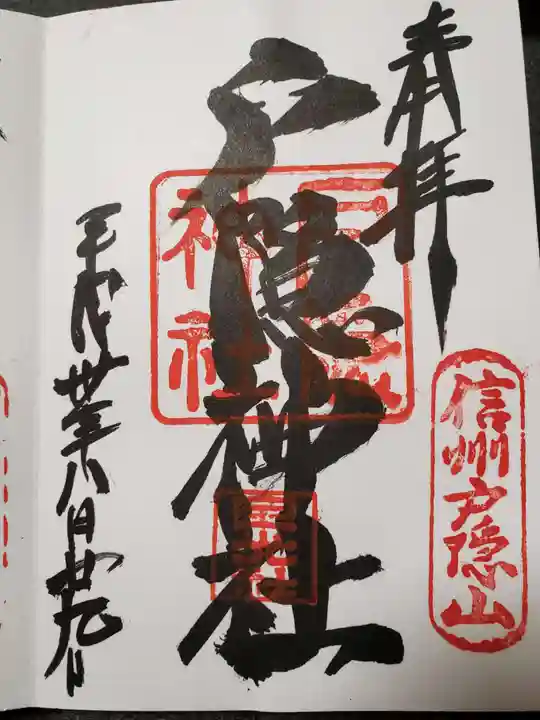 奉拝
信州戸隠山
戸隠神社
戸隠
神社
平成卅年八月廿九日